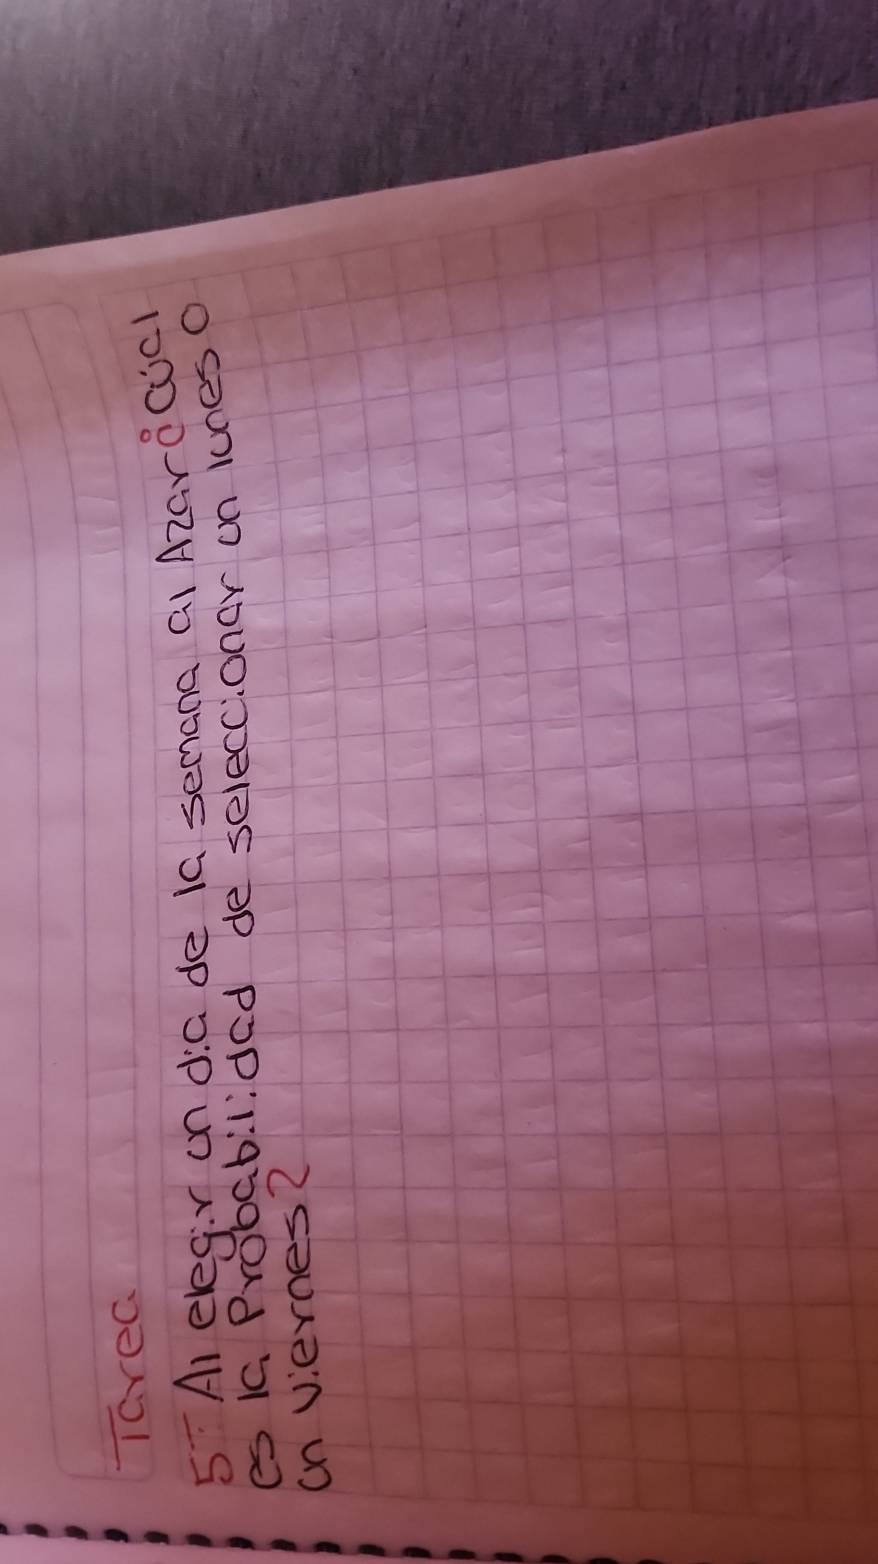 Tarea
5- Al elegir un dia de la semana al Azar ¿Cúal
es la Probabilidad de seleccionar un lunes o
un viernes?